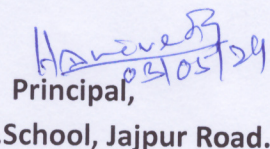 03/05/24
Principal,
.School, Jajpur Road.